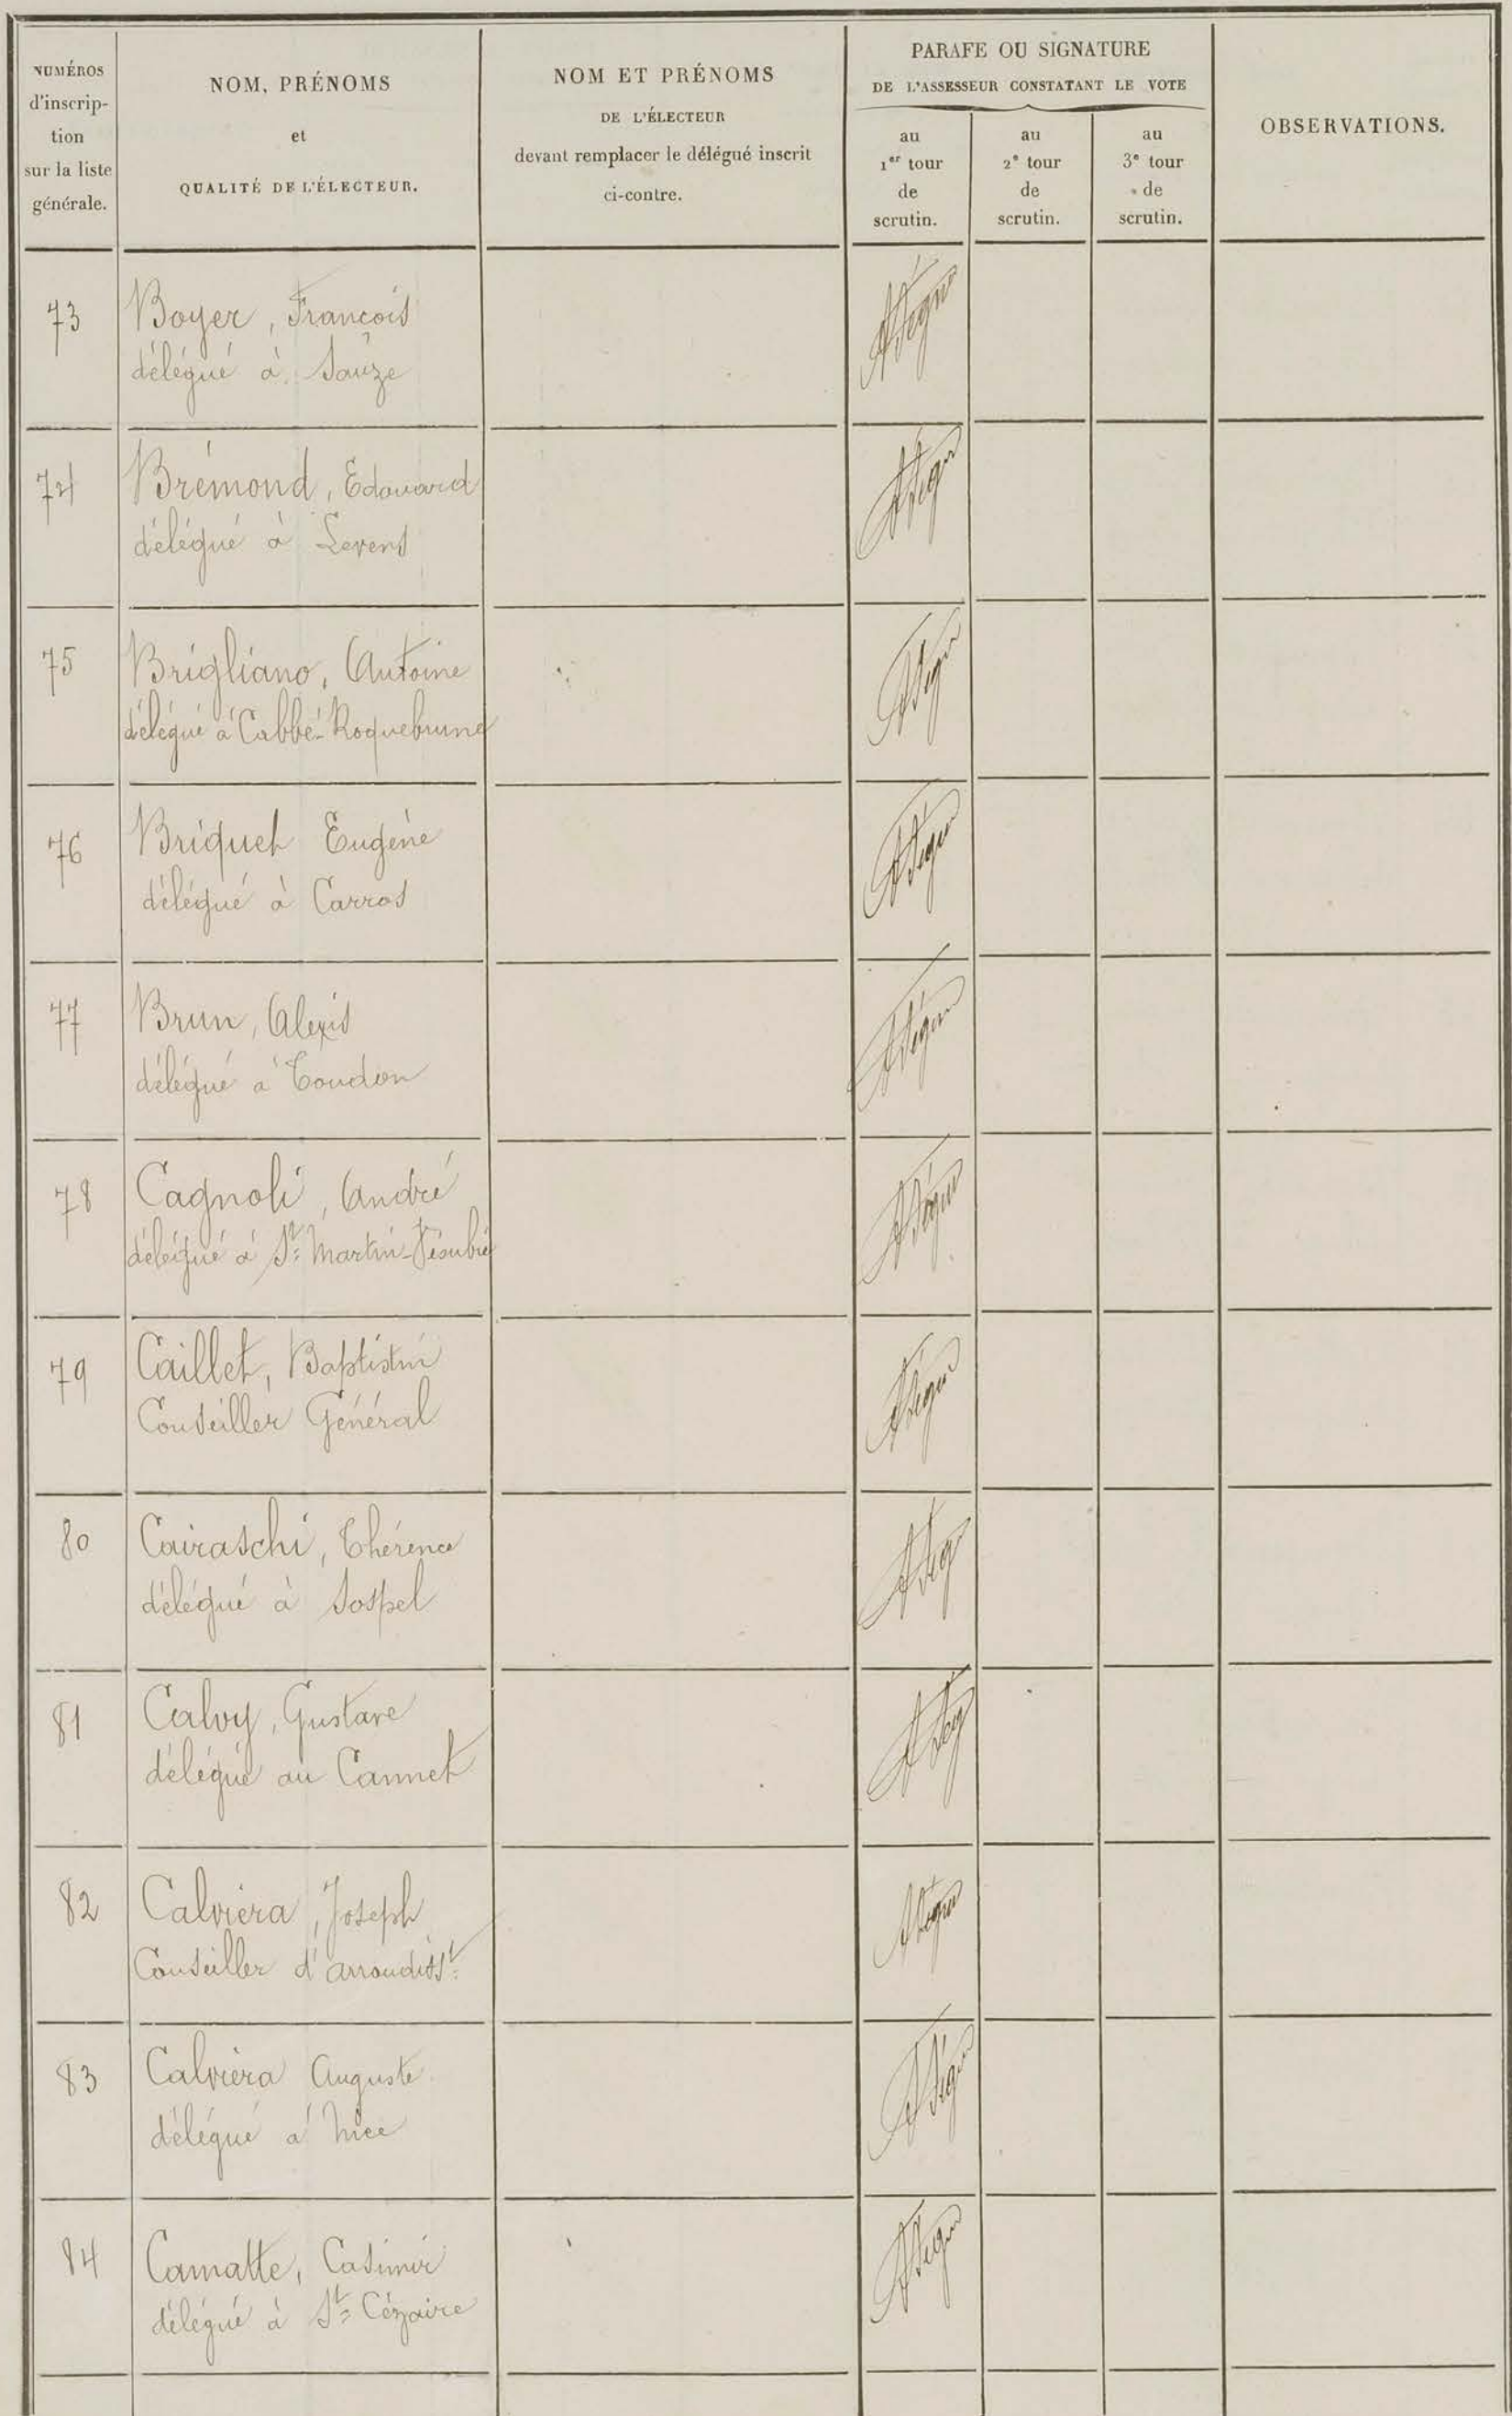 NUMÉROS
d'inscrip-
tion
sur la liste
générale.
NOM, PRÉNOMS
et
QUALITÉ DE L'ÉLECTEUR.
NOM ET PRÉNOMS
DE L'ÉLECTEUR
devant remplacer le délégué inscrit
ci-contre.
PARAFE OU SIGNATURE
DE L'ASSESSEUR CONSTATANT LE VOTE
au
1er tour
de
scrutin.
au
2e tour
de
scrutin.
au
3e tour
de
scrutin.
OBSERVATIONS.
73
Boyer, François
délégué à Sauze
74
Brémond, Edouard
délégué à Levens
75
Brigliano, Antoine
délégué à Cabbé-Roquebrune
76
Briquet Eugène
délégué à Carros
77
Brun, Alexis
délégué à Toudon
78
Cagnoli, André
délégué à St Martin-Vésubie
79
Caillet, Baptistin
Conseiller Général
80
Cairaschi, Thérence
délégué à Sospel
81
Calvy, Gustave
délégué au Cannet
82
Calviera, Joseph
Conseiller d'arrondisst
83
Calviera Auguste
délégué à Nice
84
Camatte, Casimir
délégué à St Cézaire